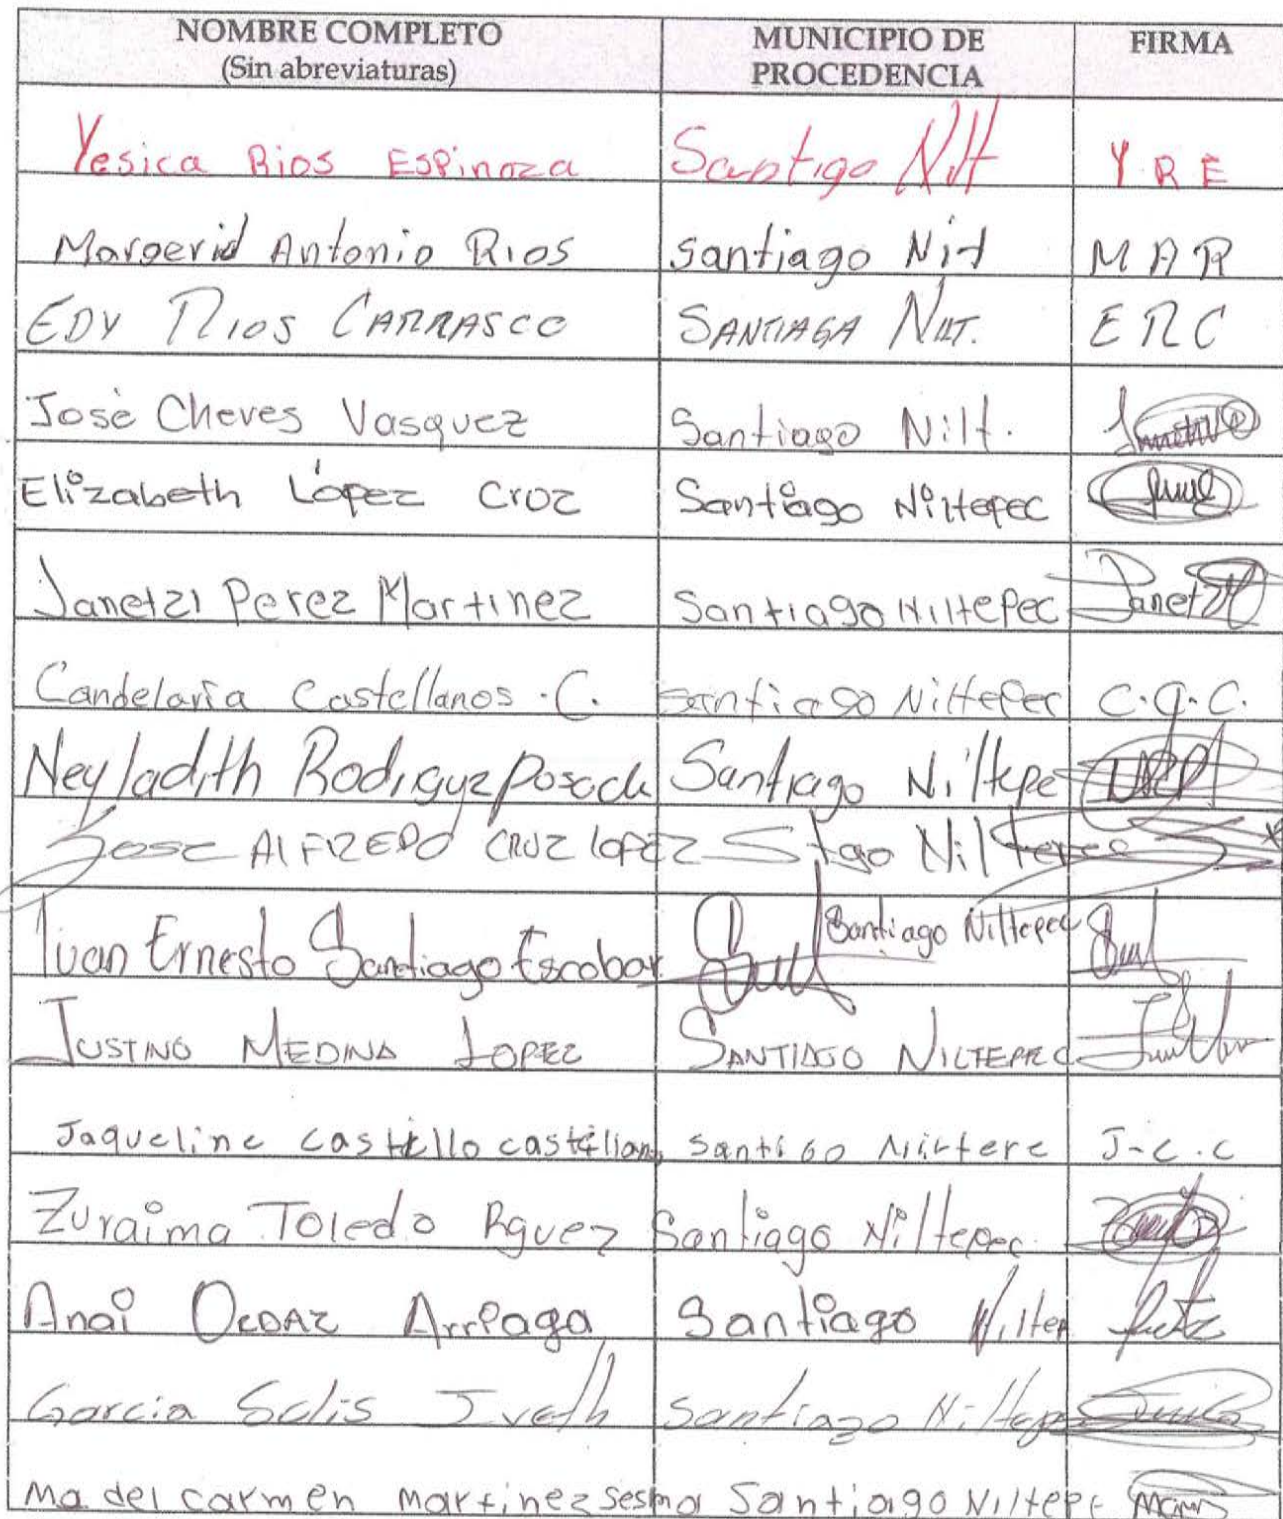 NOMBRE COMPLETO MUNICIPIO DE FIRMA
(Sin abreviaturas) PROCEDENCIA
Yesica Rios Espinoza Santigo Nilt Y R E
Margerid Antonio Rios Santiago Nilt M A R
EDY RIOS CARRASCO SANTIAGA NILT. E R C
Josè Cheves Vasquez Santiago Nilt.
Elizabeth López Croz Santiago Niltepec
Janetzi Perez Martinez Santiago Niltepec Janet
Candelaria Castellanos .C. Santiago Niltepec C.C.C.
Neyladith Rodigyez Posada Santiago Niltepe
Jose AlFREDO CRUZ lOPEZ Stgo Niltepec
Ivan Ernesto Santiago Escobar Santiago Niltepec
JUSTINO MEDINA LOPEZ SANTIAGO NILTEPEC
Jaqueline castillo castellano Santigo Niltepe J-C.C
Zuraima Toledo Rguez Santiago Niltepec
Anai Arriaga Santiago Niltep
Garcia Solis Iveth Santiago Niltepe
Ma del carmen martinez sesma Santiago Niltepe